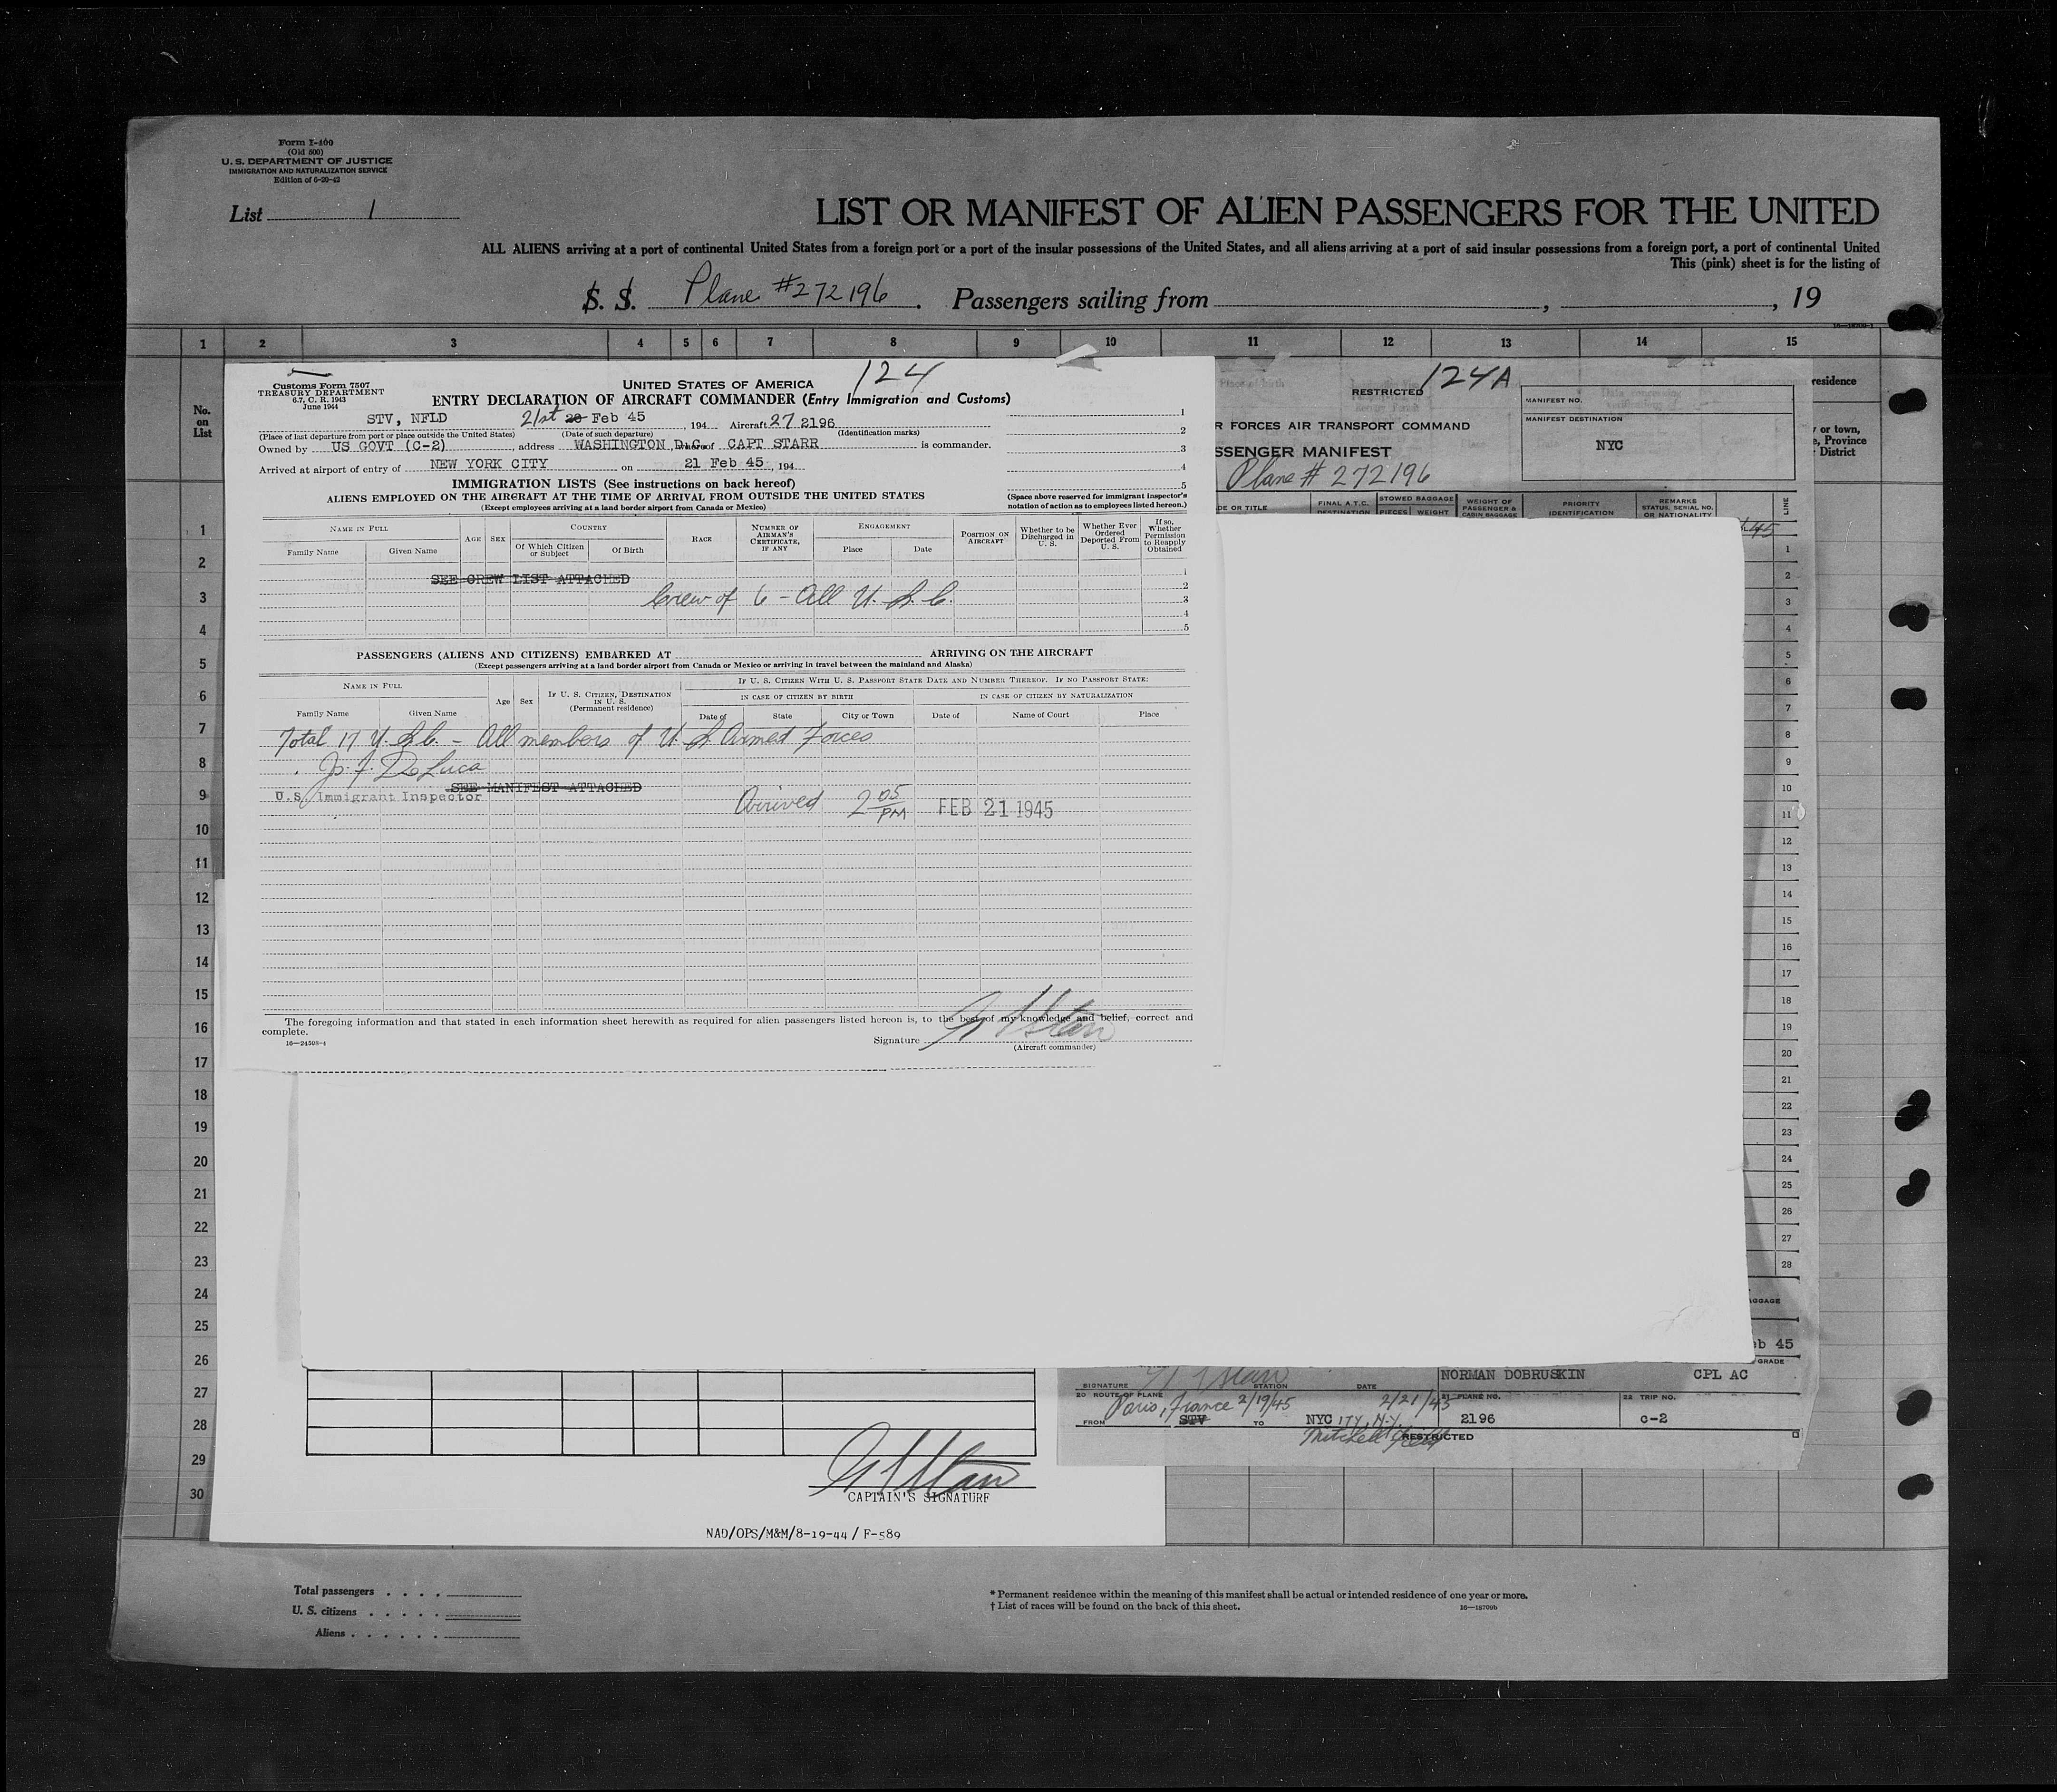 Form I-400
(Old 500)
U. S. DEPARTMENT OF JUSTICE
IMMIGRATION AND NATURALIZATION SERVICE
Edition of 6-20-42
List 1
LIST OR MANIFEST OF ALIEN PASSENGERS FOR THE UNITED
ALL ALIENS arriving at a port of continental United States from a foreign port or a port of the insular possessions of the United States, and all aliens arriving at a port of said insular possessions from a foreign port, a port of continental United
This (pink) sheet is for the listing of
S. S. Plane #272196. Passengers sailing from , , 19
1 2 3 4 5 6 7 8 9 10 11 12 13 14 15
No.
on
List
1
2
3
4
5
6
7
8
9
10
11
12
13
14
15
16
17
18
19
20
21
22
23
24
25
26
27
28
29
30
124
Customs Form 7507
TREASURY DEPARTMENT
6.7, C. R. 1943
June 1944
UNITED STATES OF AMERICA
ENTRY DECLARATION OF AIRCRAFT COMMANDER (Entry Immigration and Customs)
STV, NFLD 21st 20 Feb 45, 194 Aircraft 27 2196
(Place of last departure from port or place outside the United States) (Date of such departure) (Identification marks)
Owned by US GOVT (C-2), address WASHINGTON D.C. CAPT STARR is commander.
Arrived at airport of entry of NEW YORK CITY on 21 Feb 45, 194
1
2
3
4
5
IMMIGRATION LISTS (See instructions on back hereof)
ALIENS EMPLOYED ON THE AIRCRAFT AT THE TIME OF ARRIVAL FROM OUTSIDE THE UNITED STATES
(Except employees arriving at a land border airport from Canada or Mexico)
(Space above reserved for immigrant inspector's
notation of action as to employees listed hereon.)
NAME IN FULL
Family Name Given Name
AGE SEX
COUNTRY
Of Which Citizen or Subject Of Birth
RACE
NUMBER OF AIRMAN'S CERTIFICATE, IF ANY
ENGAGEMENT
Place Date
POSITION ON AIRCRAFT
Whether to be Discharged in U. S.
Whether Ever Ordered Deported From U. S.
If so, Whether Permission to Reapply Obtained
1
2
3
4
5
SEE CREW LIST ATTACHED
Crew of 6 - All U. S. C.
PASSENGERS (ALIENS AND CITIZENS) EMBARKED AT ARRIVING ON THE AIRCRAFT
(Except passengers arriving at a land border airport from Canada or Mexico or arriving in travel between the mainland and Alaska)
NAME IN FULL
Family Name Given Name
Age Sex
IF U. S. CITIZEN, DESTINATION IN U. S.
(Permanent residence)
IF U. S. CITIZEN WITH U. S. PASSPORT STATE DATE AND NUMBER THEREOF. IF NO PASSPORT STATE:
IN CASE OF CITIZEN BY BIRTH IN CASE OF CITIZEN BY NATURALIZATION
Date of State City or Town Date of Name of Court Place
Total 17 U.S.C. - All members of U.S. Armed Forces
Jo. F. DeLuca
SEE MANIFEST ATTACHED
U.S. Immigrant Inspector
Arrived 2 05 PM FEB 21 1945
The foregoing information and that stated in each information sheet herewith as required for alien passengers listed hereon is, to the best of my knowledge and belief, correct and
complete.
16—24598-1
Signature
(Aircraft commander)
RESTRICTED 124A
R FORCES AIR TRANSPORT COMMAND
SSENGER MANIFEST
Plane # 272196
MANIFEST NO.
MANIFEST DESTINATION
NYC
DE OR TITLE
FINAL A.T.C. DESTINATION
STOWED BAGGAGE
PIECES WEIGHT
WEIGHT OF PASSENGER & CABIN BAGGAGE
PRIORITY IDENTIFICATION
REMARKS
STATUS, SERIAL NO. OR NATIONALITY
LINE
45
1
2
3
4
5
6
7
8
9
10
11
12
13
14
15
16
17
18
19
20
21
22
23
24
25
26
27
28
residence
or town,
Province
District
AGGAGE
eb 45
GRADE
NORMAN DOBRUSKIN CPL AC
SIGNATURE STATION DATE
20 ROUTE OF PLANE 21 PLANE NO. 22 TRIP NO.
Paris, France 2/19/45 2/21/45
FROM STV TO NYC ITY, N.Y. 2196 C-2
Mitchell Field
RESTRICTED
CAPTAIN'S SIGNATURE
NAD/OPS/M&M/8-19-44 / F-589
Total passengers
U. S. citizens
Aliens
* Permanent residence within the meaning of this manifest shall be actual or intended residence of one year or more.
† List of races will be found on the back of this sheet.
16—18709b